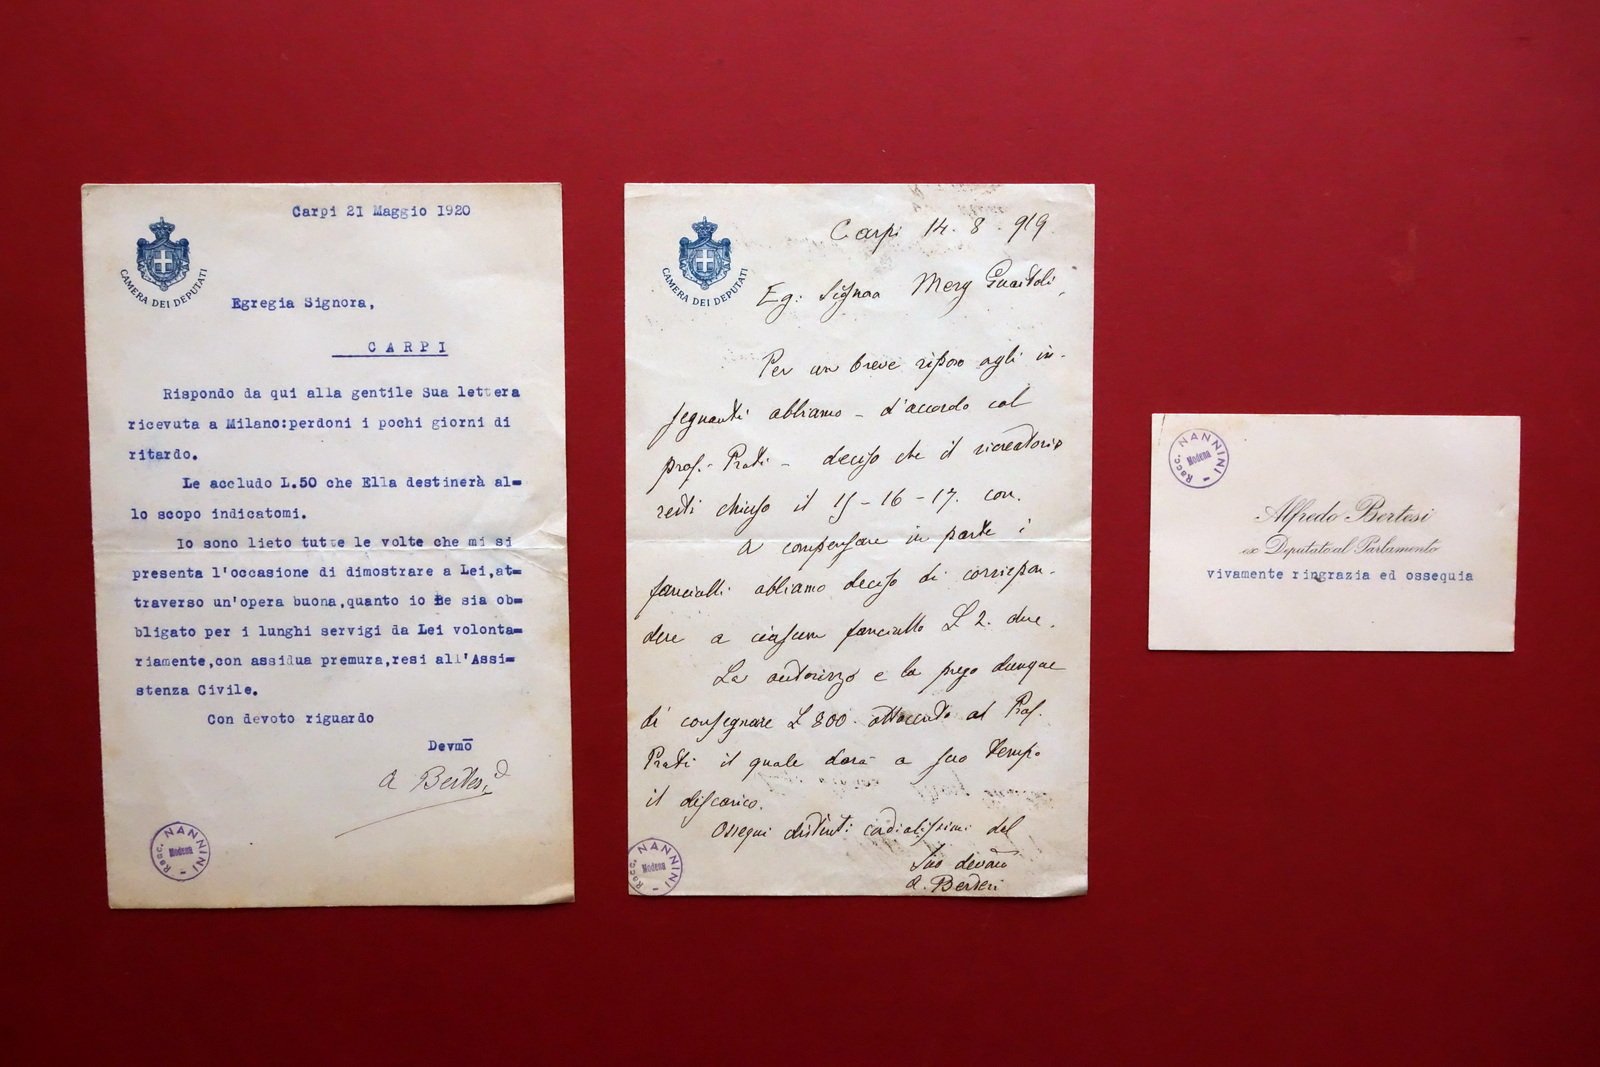 Carpi 21 Maggio 1920
CAMERA DEI DEPUTATI
Egregia Signora,
CARPI
Rispondo da qui alla gentile Sua lettera
ricevuta a Milano:perdoni i pochi giorni di
ritardo.
Le accludo L.50 che Ella destinerà al=
lo scopo indicatomi.
Io sono lieto tutte le volte che mi si
presenta l'occasione di dimostrare a Lei,at=
traverso un'opera buona,quanto io Le sia ob=
bligato per i lunghi servigi da Lei volonta=
riamente,con assidua premura,resi all'Assi=
stenza Civile.
Con devoto riguardo
Devmō
A Bertesi
Racc. NANNINI - Modena
Carpi 14. 8. 919
CAMERA DEI DEPUTATI
Eg: Signora Mery Guaitoli,
Per un breve riposo agli in-
segnanti abbiamo - d'accordo col
prof. Prati - deciso che il ricreatorio
resti chiuso il 15-16-17. corr.
A compensare in parte i
fanciulli abbiamo deciso di corrispon-
dere a ciascun fanciullo £ 2. due.
La autorizzo e la prego dunque
di consegnare £ 800. ottocento al Prof.
Prati il quale darà a suo tempo
il discarico.
Ossequi distinti cordialissimi del
Suo devmo
A. Bertesi
Racc. NANNINI - Modena
Racc. NANNINI - Modena
Alfredo Bertesi
ex Deputato al Parlamento
vivamente ringrazia ed ossequia